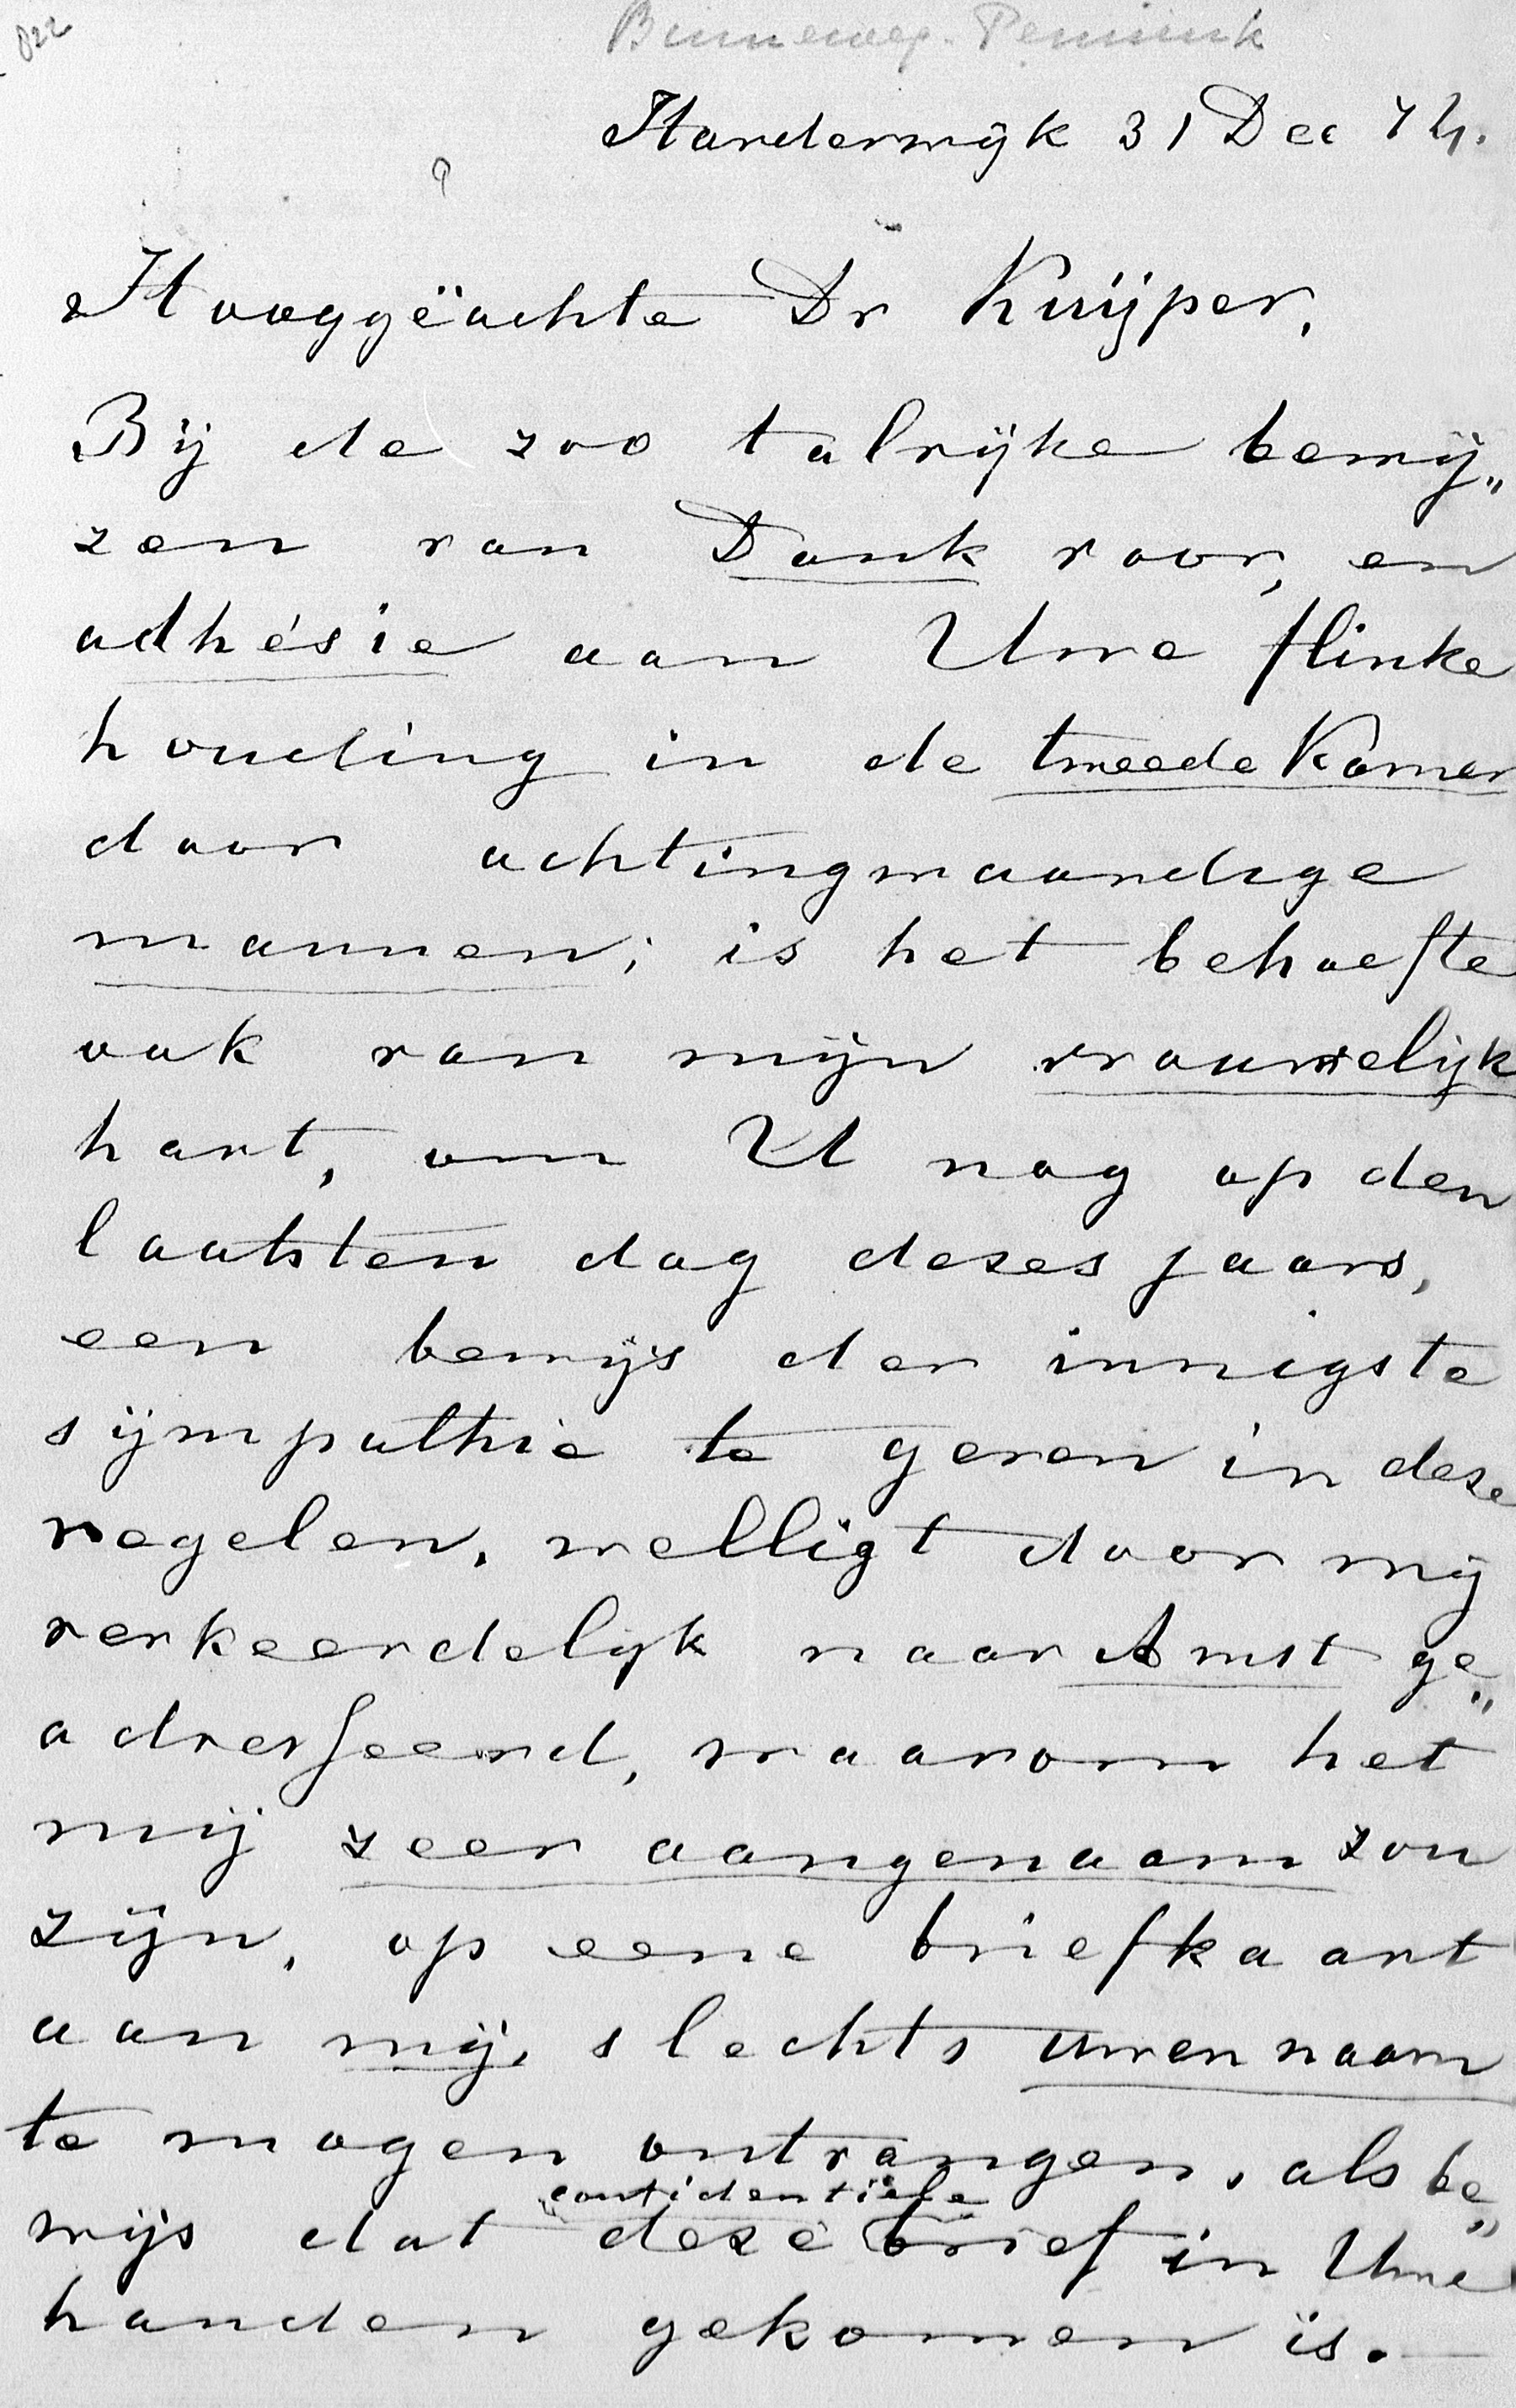 022
Binneweg-Pennink
Harderwijk 31 Dec 74.
Hooggeächte Dr Kuijper,
Bij de zoo talrijke bewij„
zen van Dank voor, en
adhésie aan Uwe flinke
houding in de tweede Kamer
door achtingwaardige
mannen; is het behoefte
ook van mijn vrouwelijk
hart, om U nog op den
laatsten dag dezes jaars,
een bewijs der innigste
sijmpathie te geven in deze
regelen, welligt door mij
verkeerdelijk naar Amst ge„
adresseerd, waarom het
mij zeer aangenaam zou
zijn, op eene briefkaart
aan mij, slechts uwen naam
te mogen ontvangen, als be„
confidentiëele
wijs dat deze brief in Uwe
handen gekomen is.—